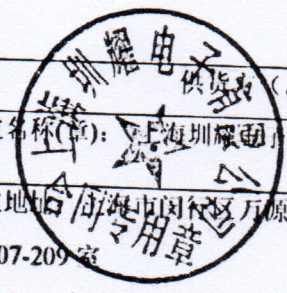 上海圳耀电子有限公司
合同专用章
供货方（
名称(章)： 上海圳耀电子
地址： 上海市闵行区万源
07-209 室